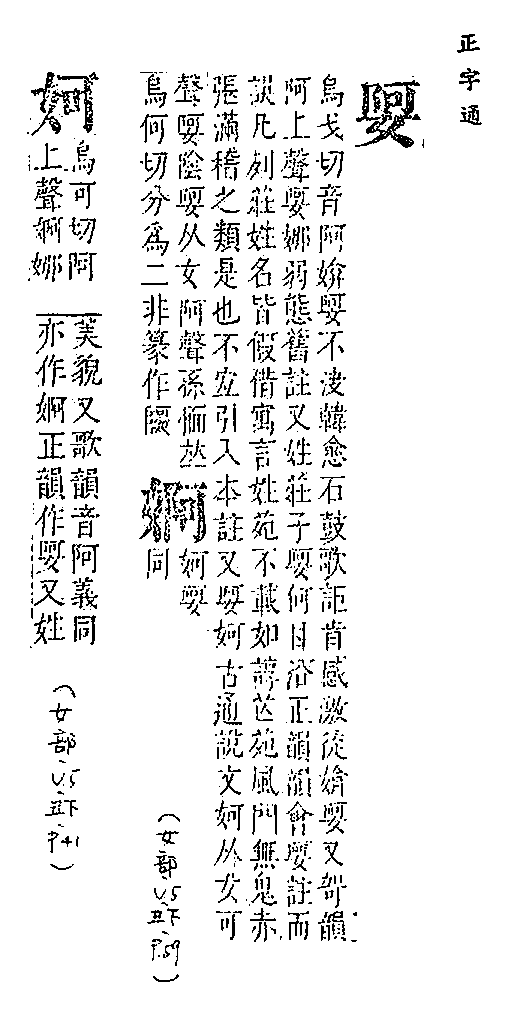 正字通
娿
烏戈切音阿媕娿不決韓愈石鼓歌詎肯感激徒媕娿又哿韻
阿上聲娿娜弱態舊註又姓莊子娿何甘沿正韻韻會娿註而
誤凡列莊姓名皆假借寓言姓苑不載如諄芒苑風門無鬼赤
張滿稽之類是也不宜引入本註又娿妸古通說文妸从女可
聲娿陰娿从女阿聲孫愐𠀤
烏何切分爲二非篆作
婀
妸娿
同
妸
烏可切阿
上聲婀娜
美貌又歌韻音阿義同
亦作婀正韻作娿又姓
(女部、V5、丑下、P.59)
(女部、V5、丑下、P41)